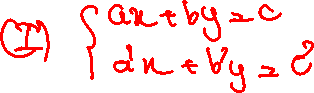 (I) { ax + by = c
a'x + b'y = c'